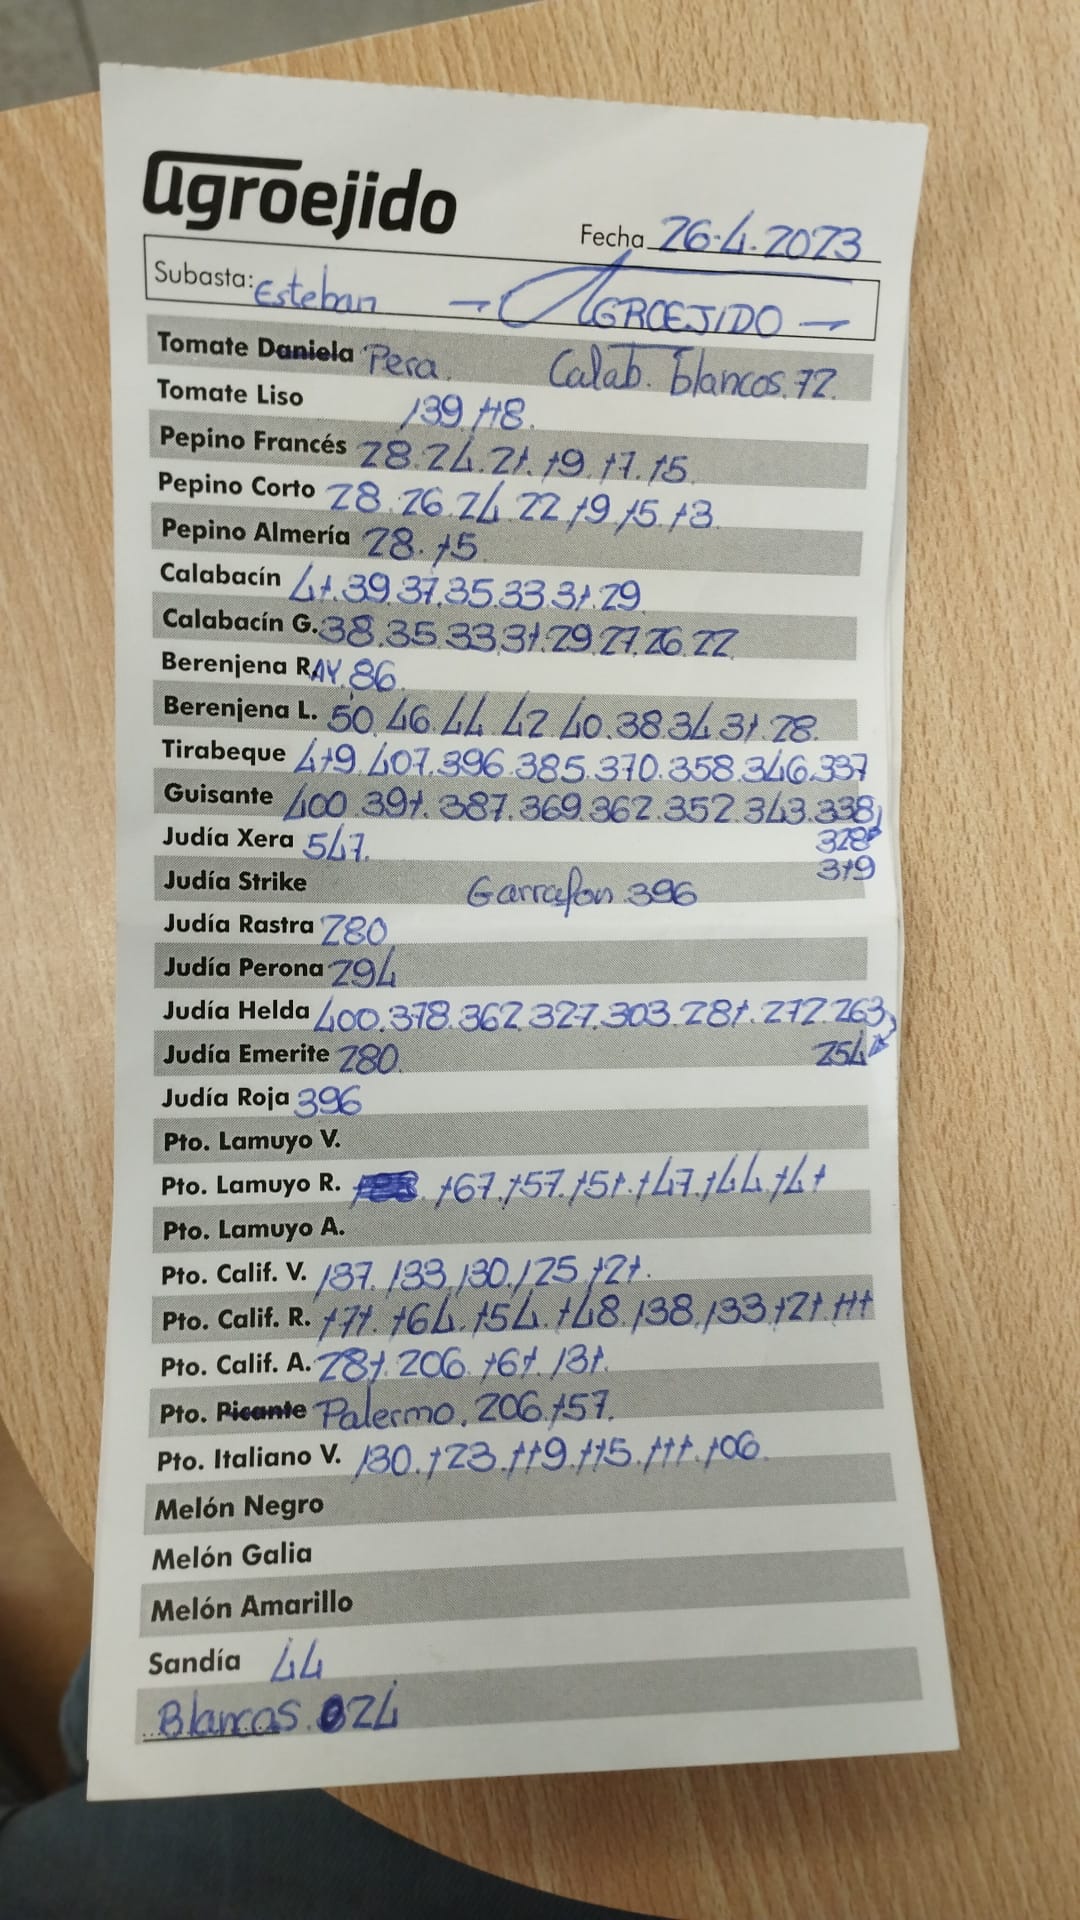 agroejido
Fecha 26.4.2023
Subasta: Esteban — AGROEJIDO —
Tomate Daniela Pera. Calab. blancos. 72.
Tomate Liso 139. 118.
Pepino Francés 28. 24. 21. 19. 17. 15.
Pepino Corto 28. 26. 24. 22 19 15. 13.
Pepino Almería 28. 15.
Calabacín 41. 39. 37. 35. 33. 31. 29.
Calabacín G. 38. 35. 33. 31. 29. 27. 26. 22.
Berenjena RAY. 86.
Berenjena L. 50. 46. 44 42 40. 38. 34. 31. 28.
Tirabeque 419. 407. 396. 385. 370. 358. 346. 337
Guisante 400. 391. 387. 369. 362. 352. 343. 338
Judía Xera 547. 328
319
Judía Strike Garrafon 396
Judía Rastra 280
Judía Perona 294
Judía Helda 400. 378. 362. 327. 303. 281. 272. 263
Judía Emerite 280. 254
Judía Roja 396
Pto. Lamuyo V.
Pto. Lamuyo R. 167. 157. 151. 147. 144. 141
Pto. Lamuyo A.
Pto. Calif. V. 137. 133. 130. 125. 121.
Pto. Calif. R. 171. 164. 154. 148. 138. 133. 121. 111
Pto. Calif. A. 281. 206. 161. 131.
Pto. Picante Palermo. 206. 157.
Pto. Italiano V. 130. 123. 119. 115. 111. 106.
Melón Negro
Melón Galia
Melón Amarillo
Sandía 44
Blancas. 24